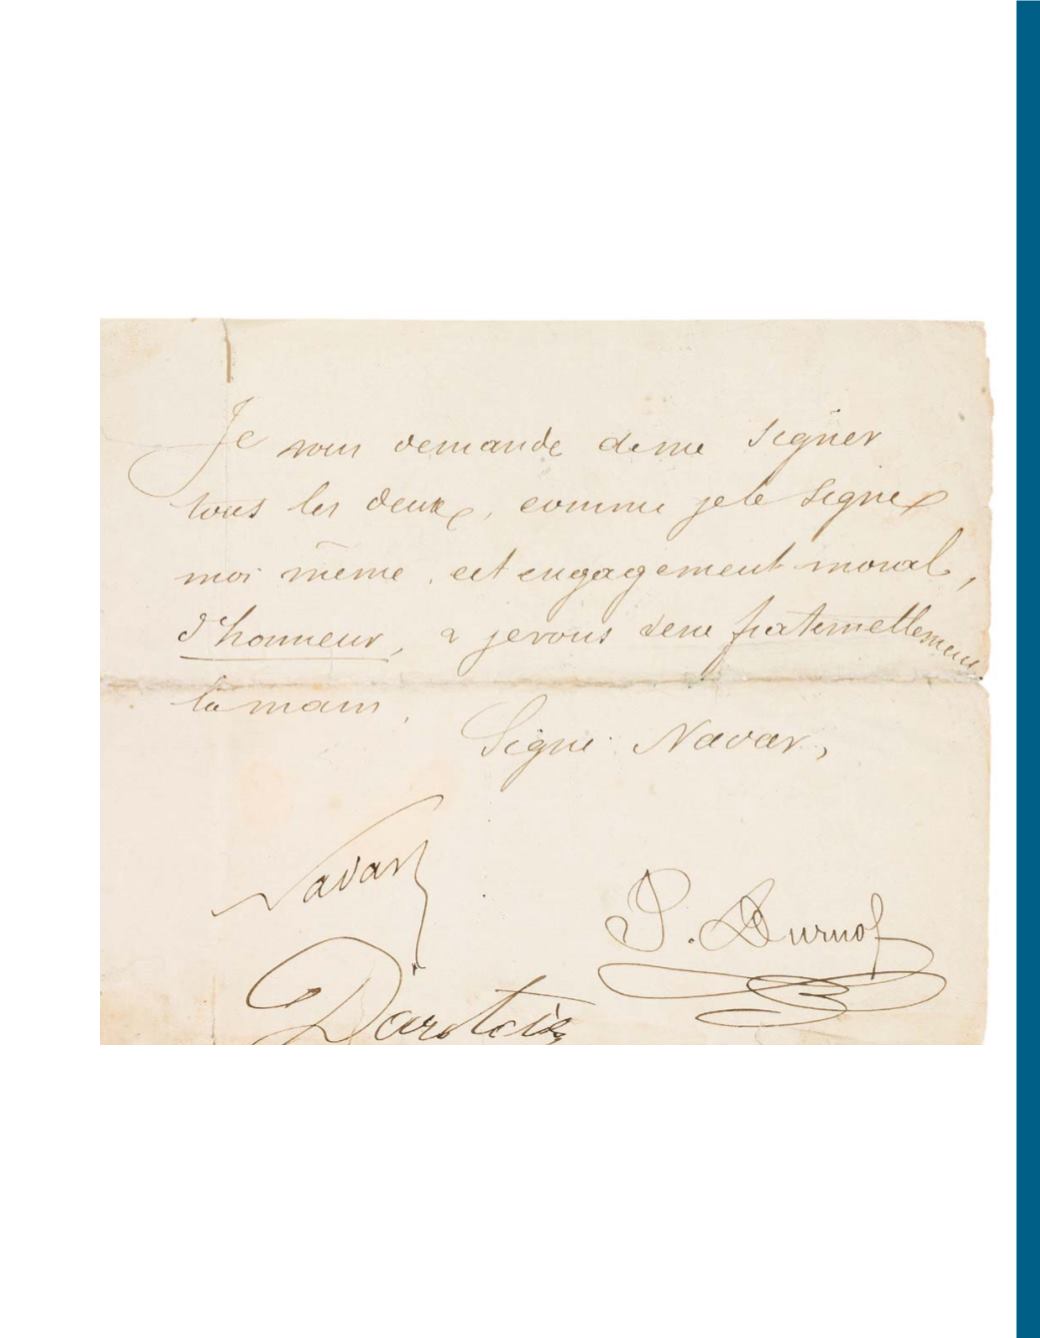 Je vous demande de me signer
tous les deux, comme je le signe
moi même, cet engagement moral,
d'honneur, & je vous serre fraternellement
la main,
Signé: Nadar,
Nadar
J. Durnof
Dartois